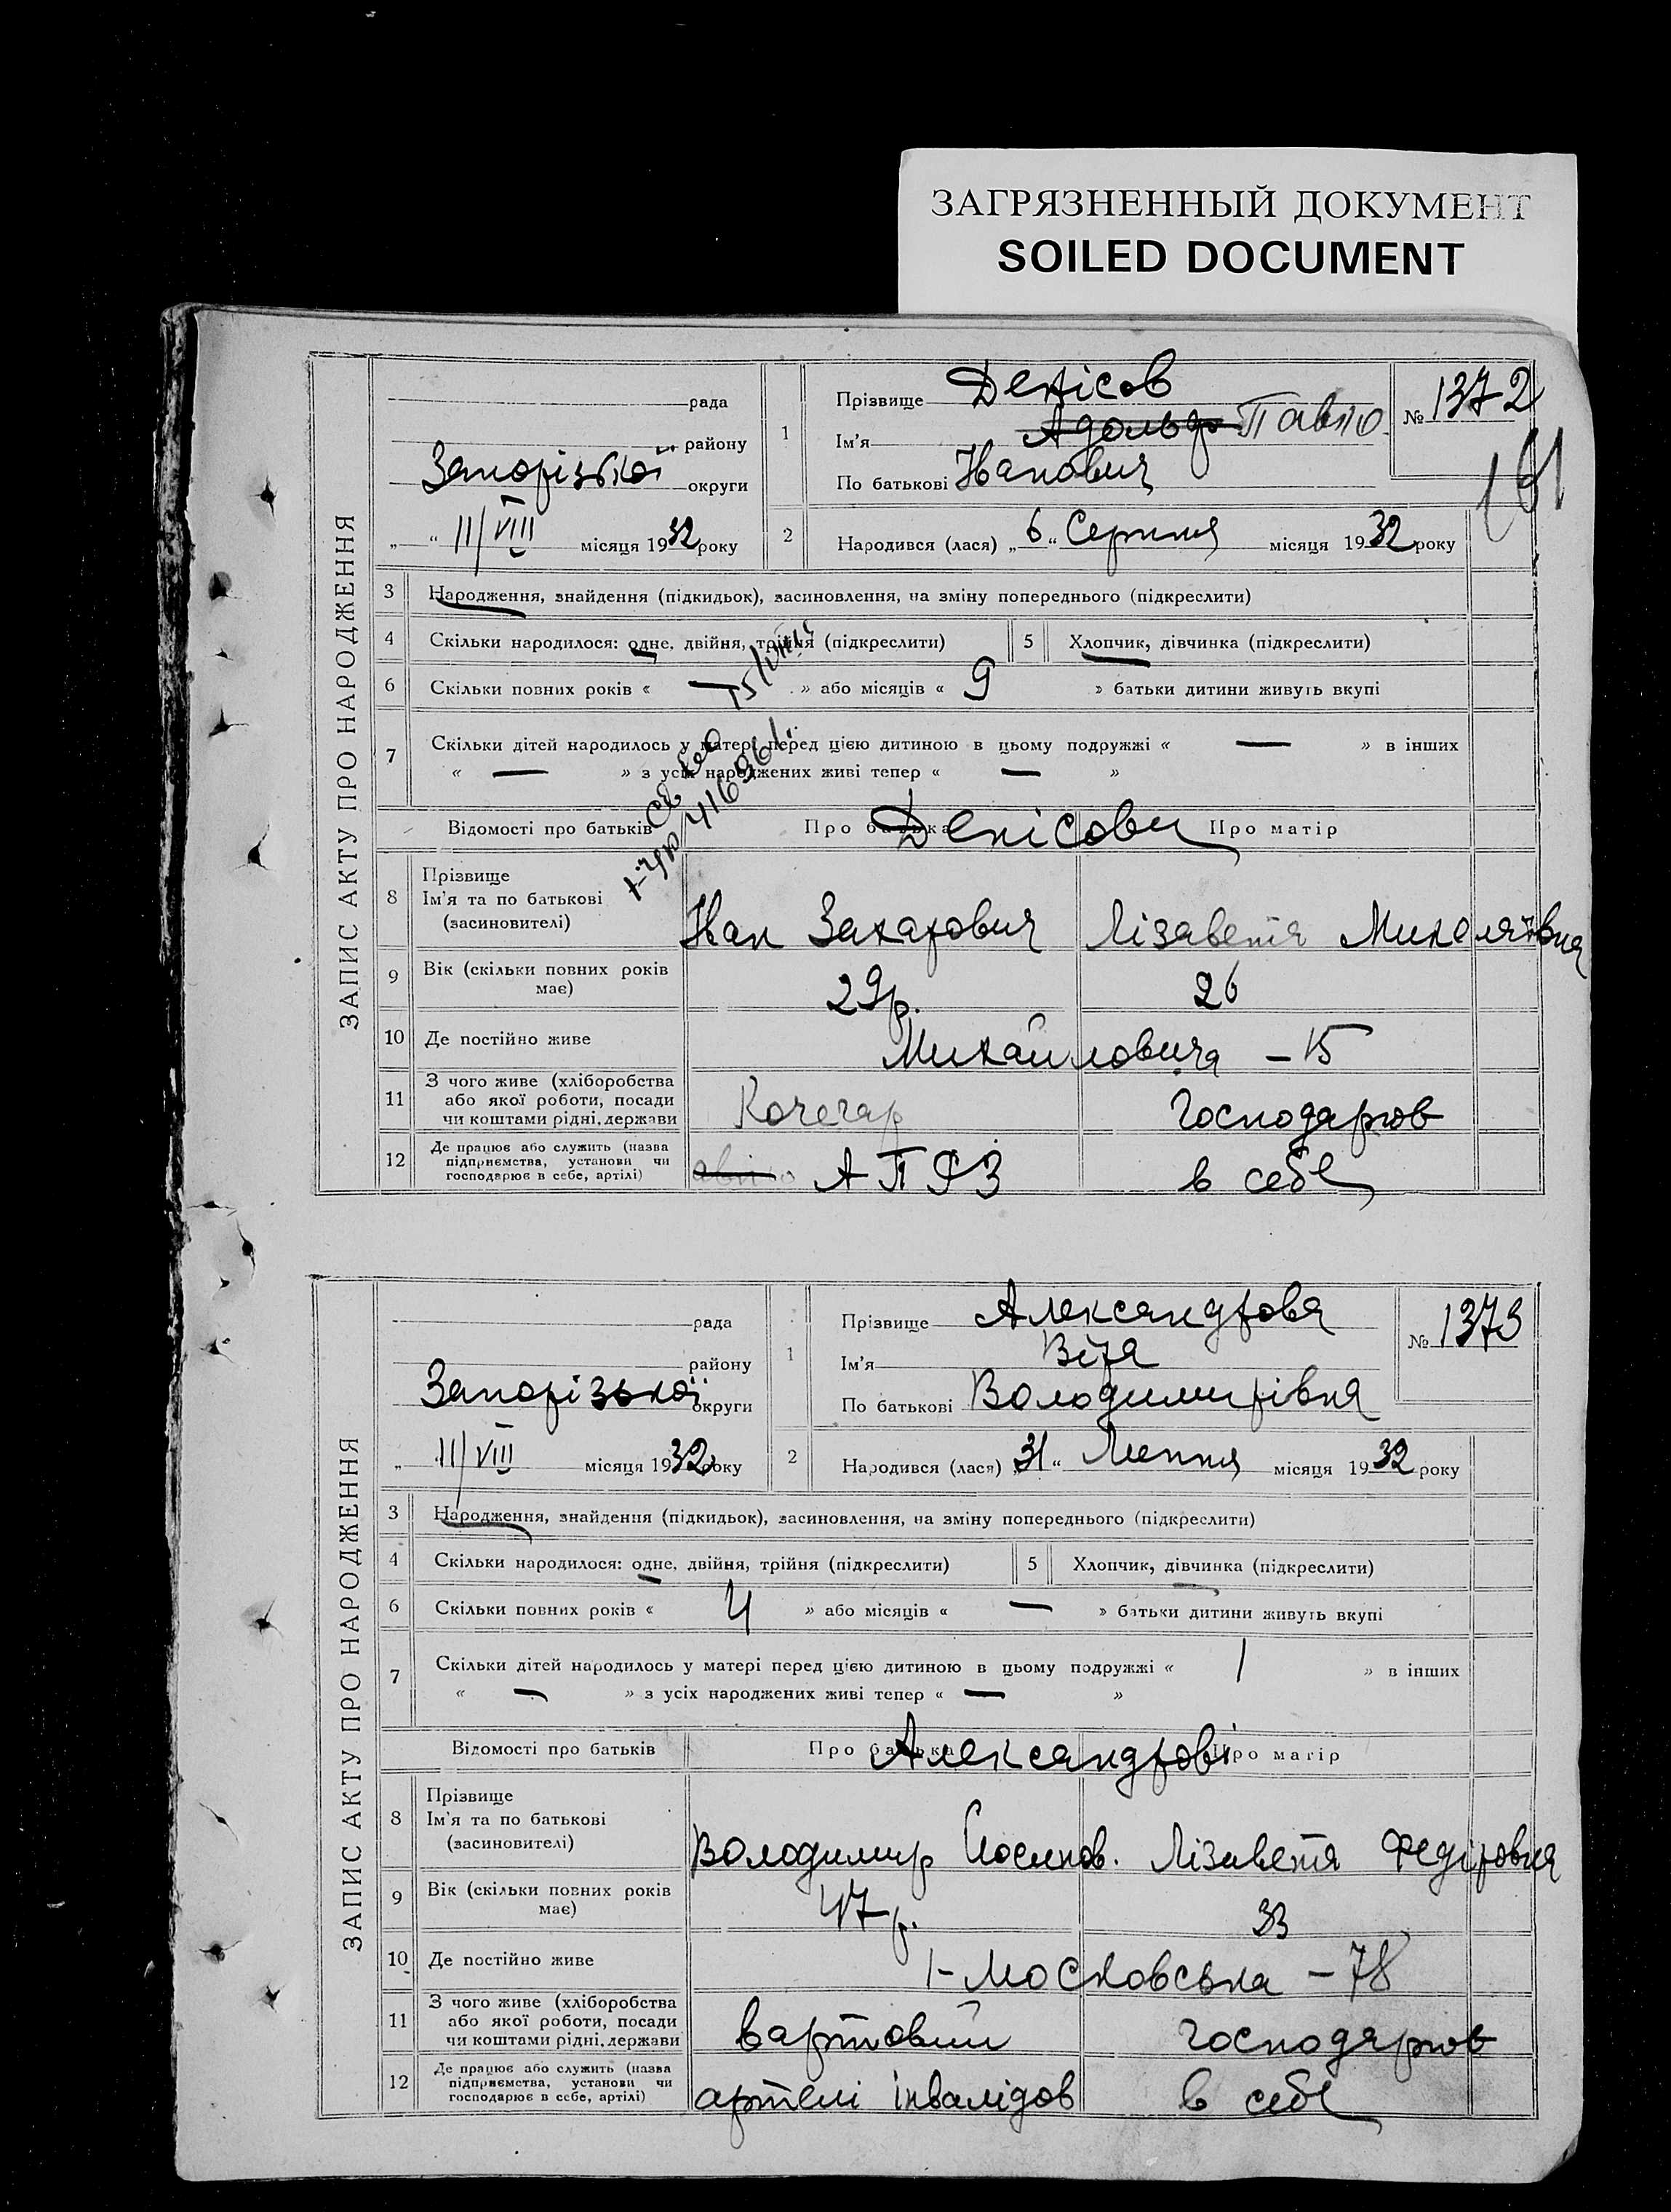 ЗАГРЯЗНЕННЫЙ ДОКУМЕНТ
SOILED DOCUMENT
ЗАПИС АКТУ ПРО НАРОДЖЕННЯ
рада
району
Запорізької округи
„ “ 11/VIII місяця 1932 року
1
Прізвище Денісов
Ім'я Адольф Павло
По батькові Іванович
№ 1372
161
2
Народився (лася) „6“ Серпня місяця 1932 року
3 Народження, знайдення (підкидьок), засиновлення, на зміну попереднього (підкреслити)
4 Скільки народилося: одне, двійня, трійня (підкреслити) 5 Хлопчик, дівчинка (підкреслити)
6 Скільки повних років « — » або місяців « 9 » батьки дитини живуть вкупі
7 Скільки дітей народилось у матері перед цією дитиною в цьому подружжі « — » в інших
« — » з усіх народжених живі тепер « — »
Відомості про батьків Про батька Про матір
Денісови
8 Прізвище
Ім'я та по батькові
(засновителі)
Іван Захарович Лізавета Миколаївна
9 Вік (скільки повних років має) 29 р. 26
10 Де постійно живе Михайловича – 15
11 З чого живе (хліборобства
або якої роботи, посади
чи коштами рідні, держави
Кочегар Господарює
12 Де працює або служить (назва
підприємства, установи чи
господарює в себе, артілі)
АПФЗ в себе
ЗАПИС АКТУ ПРО НАРОДЖЕННЯ
рада
району
Запорізької округи
„ 11/VIII місяця 1932 року
1
Прізвище Александрова
Ім'я Віра
По батькові Володимирівна
№ 1373
2
Народився (лася) 31“ Липня місяця 1932 року
3 Народження, знайдення (підкидьок), засиновлення, на зміну попереднього (підкреслити)
4 Скільки народилося: одне, двійня, трійня (підкреслити) 5 Хлопчик, дівчинка (підкреслити)
6 Скільки повних років « 4 » або місяців « — » батьки дитини живуть вкупі
7 Скільки дітей народилось у матері перед цією дитиною в цьому подружжі « 1 » в інших
« — » з усіх народжених живі тепер « — »
Відомості про батьків Про батька Про матір
Александрові
8 Прізвище
Ім'я та по батькові
(засиновителі)
Володимир Йосипов. Лізавета Федіровна
9 Вік (скільки повних років має) 47 р. 33
10 Де постійно живе 1-Московська – 78
11 З чого живе (хліборобства
або якої роботи, посади
чи коштами рідні, держави
вартовий господарює
12 Де працює або служить (назва
підприємства, установи чи
господарює в себе, артілі)
артелі інвалідов в себе